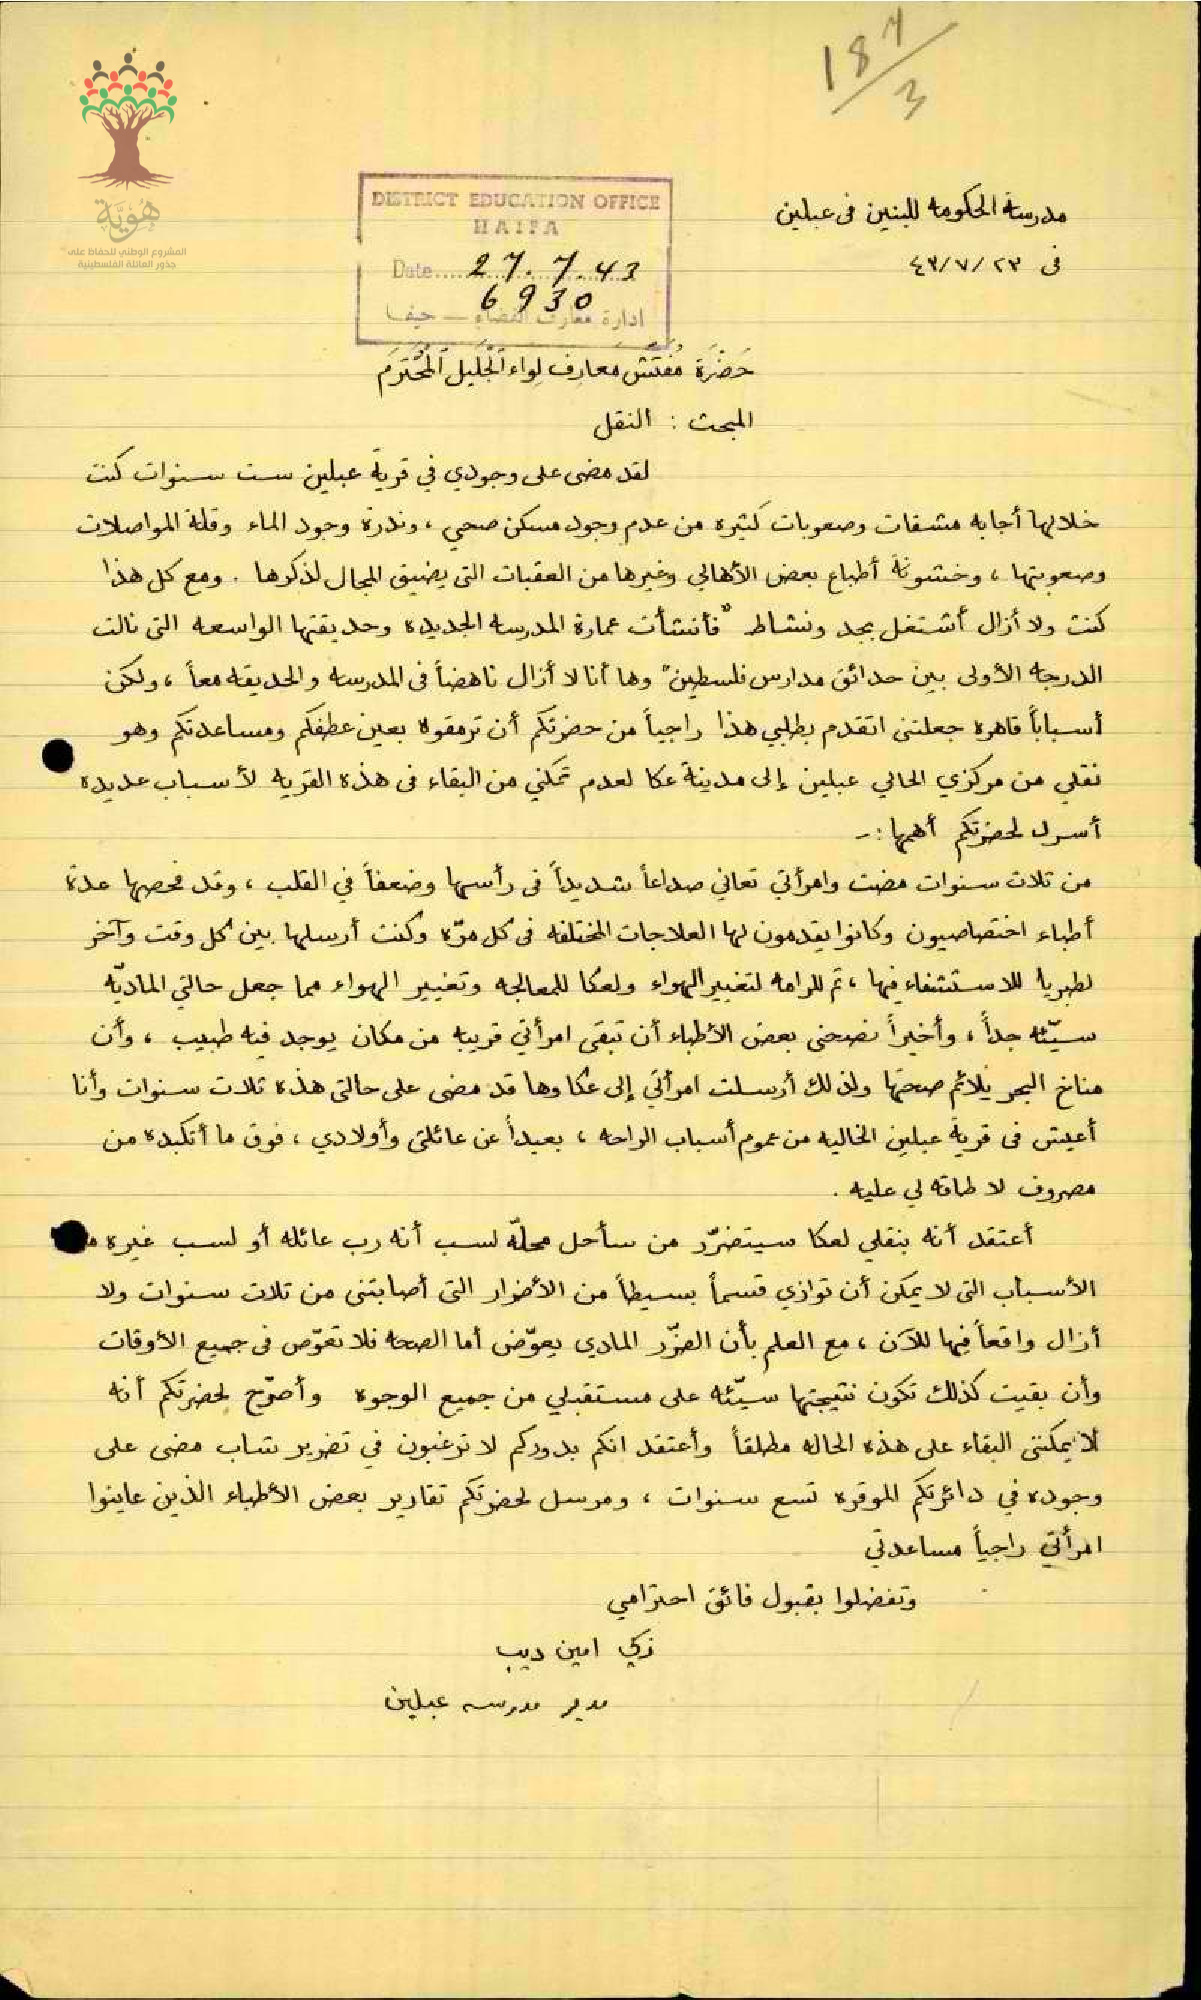 187/3
هُوِيَّة
المشروع الوطني للحفاظ على
جذور العائلة الفلسطينية
DISTRICT EDUCATION OFFICE
HAIFA
Date 27.7.43
6930
ادارة معارف القضاء — حيفا
مدرسة الحكومه للبنين فى عبلين
فى ٢٣/٧/٤٣
حَضْرَة مُفَتِّش مَعارِف لِواء اَلْجَليل اَلْمُحْتَرَم
المبحث : النقل
لقد مضى على وجودي في قرية عبلين ست سنوات كنت
خلالها أجابه مشقات وصعوبات كثيره من عدم وجود مسكن صحي ، وندرة وجود الماء وقلة المواصلات
وصعوبتها ، وخشونة أطباع بعض الأهالي وغيرها من العقبات التى يضيق المجال لذكرها . ومع كل هذا
كنت ولا أزال أشتغل بجد ونشاط "فأنشأت عمارة المدرسه الجديده وحديقتها الواسعه التى نالت
الدرجه الأولى بين حدائق مدارس فلسطين" وها أنا لا أزال ناهضاً فى المدرسه والحديقه معاً ، ولكن
أسباباً قاهره جعلتنى اتقدم بطلبي هذا راجياً من حضرتكم أن ترمقوه بعين عطفكم ومساعدتكم وهو
نقلي من مركزي الحالي عبلين إلى مدينة عكا لعدم تمكني من البقاء فى هذه القريه لأسباب عديده
أسرد لحضرتكم أهمها :-
من ثلاث سنوات مضت وامرأتي تعاني صداعاً شديداً فى رأسها وضعفاً في القلب ، وقد فحصها عدة
أطباء اختصاصيون وكانوا يقدمون لها العلاجات المختلفه فى كل مرّه وكنت أرسلها بين كل وقت وآخر
لطبريا للاستشفاء فيها ، ثم للرامه لتغيير الهواء ولعكا للمعالجه وتغيير الهواء مما جعل حالتي الماديّه
سيّئه جداً ، وأخيراً نصحنى بعض الأطباء أن تبقى امرأتي قريبه من مكان يوجد فيه طبيب ، وأن
مناخ البحر يلائم صحتها ولذلك أرسلت امرأتي إلى عكا وها قد مضى على حالتى هذه ثلاث سنوات وأنا
أعيش فى قرية عبلين الخاليه من عموم أسباب الراحه ، بعيداً عن عائلتى وأولادي ، فوق ما أتكبده من
مصروف لا طاقه لي عليه .
أعتقد أنه بنقلي لعكا سيتضرّر من سأحل محلّه لسبب أنه رب عائله أو لسبب غيره
الأسباب التى لا يمكن أن توازي قسماً بسيطاً من الأضرار التى أصابتنى من ثلاث سنوات ولا
أزال واقعاً فيها للآن ، مع العلم بأن الضّرر المادي يعوّض أما الصحه فلا تعوّض فى جميع الأوقات
وأن بقيت كذلك تكون نتيجتها سيّئه على مستقبلي من جميع الوجوه وأصرّح لحضرتكم أنه
لا يمكننى البقاء على هذه الحاله مطلقاً وأعتقد انكم بدوركم لا ترغبون في تضرير شاب مضى على
وجوده في دائرتكم الموقره تسع سنوات ، ومرسل لحضرتكم تقارير بعض الأطباء الذين عاينوا
امرأتي راجياً مساعدتي
وتفضلوا بقبول فائق احترامي
زكي امين ديب
مدير مدرسه عبلين